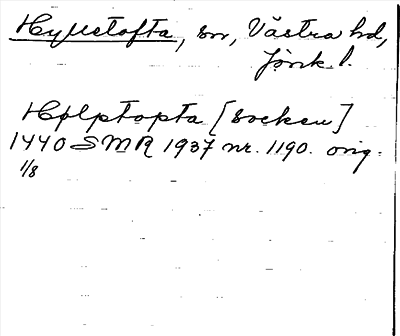 Hyllstofta, sn, Västra hd,
Jönk. l.
Hølptopta [socken]
1440 SMR 1937 nr. 1190. orig.
1/8